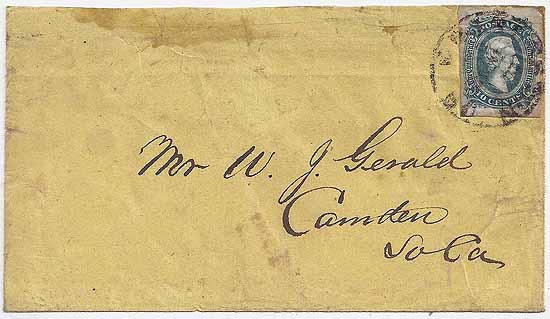 POSTAGE
10 CENTS
Mr W. J. Gerald
Camden
So Ca